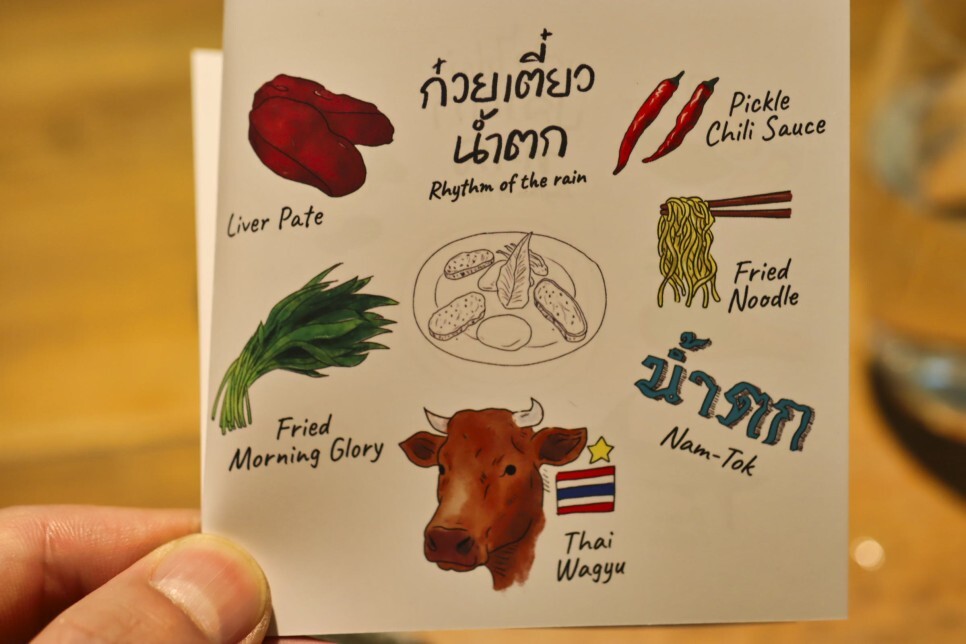 ก๋วยเตี๋ยว
น้ำตก
Rhythm of the rain
Liver Pate
Pickle
Chili Sauce
Fried
Noodle
Fried
Morning Glory
น้ำตก
Nam-Tok
Thai
Wagyu